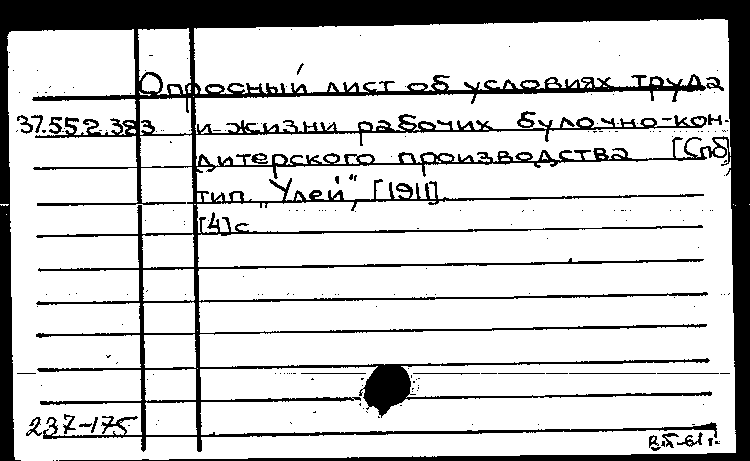 Опросный лист об условиях труда
37.55.2.383 и жизни рабочих булочно-кон-
дитерского производства [Спб]
тип. "Улей", [1911].
[4]с.
237-175